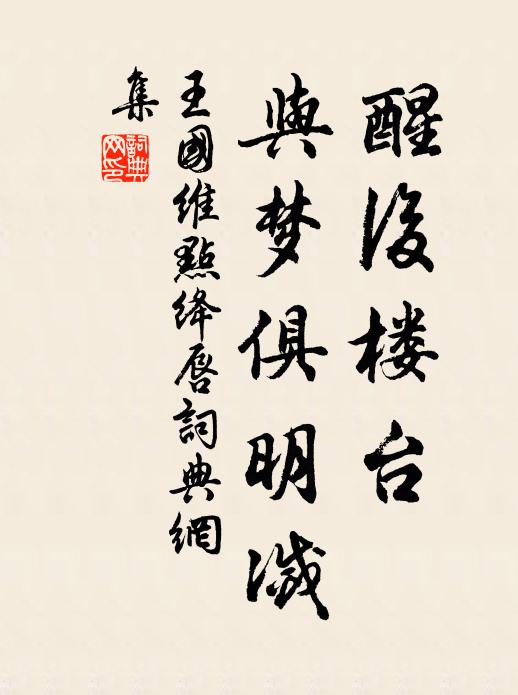 醒後楼台
與梦俱明滅
王國維點绛唇詞典網
集
詞典
网印